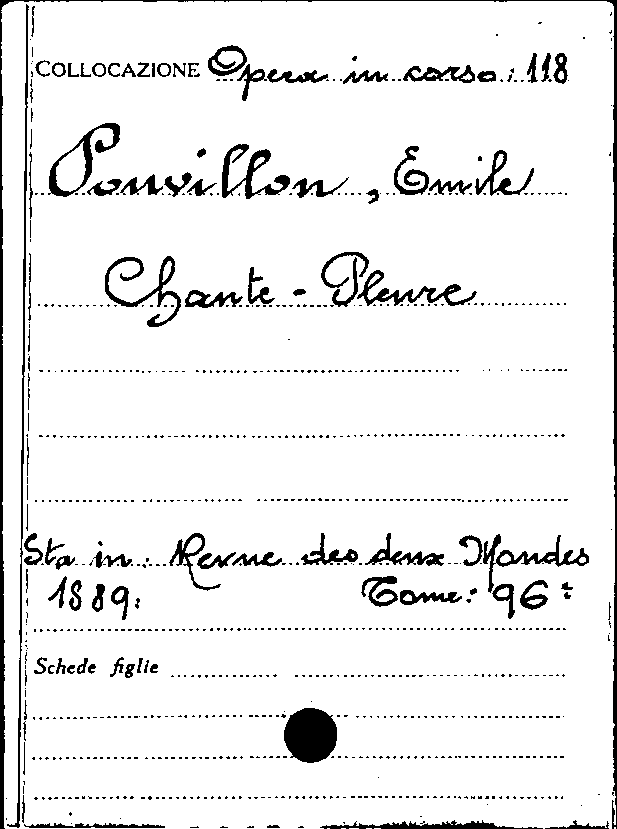 COLLOCAZIONE Opera in corso: 118
Pouvillon, Emile
Chante-Pleure
Sta in: Revue des deux Mondes
1889: Tome: 96:
Schede figlie